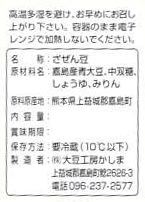 高温多湿を避け、お早めにお召し
上がり下さい。容器のまま電子
レンジで加熱しないでください。
名称：ざぜん豆
原材料名：嘉島産青大豆、中双糖、
しょうゆ、みりん
原料原産地：熊本県上益城郡嘉島町
内容量：
賞味期限：
保存方法：要冷蔵(10℃以下)
製造者：㈱大豆工房かしま
上益城郡嘉島町鯰2626-3
電話 096-237-2577